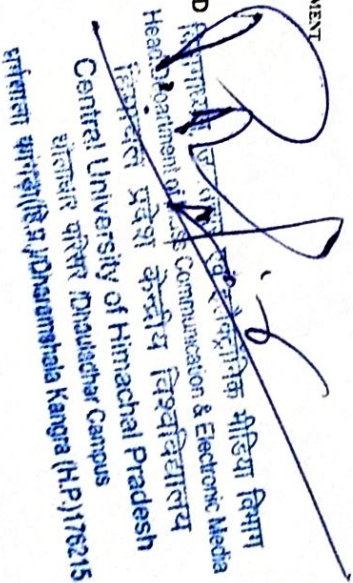 MENT
D
विभागाध्यक्ष एवं इलेक्ट्रॉनिक मीडिया विभाग
Head Department of Communication & Electronic Media
हिमाचल प्रदेश केन्द्रीय विश्वविद्यालय
Central University of Himachal Pradesh
धौलाधार परिसर /Dhauladhar Campus
धर्मशाला कांगड़ा(हि.प्र.)/Dharamshala Kangra (H.P.)176215